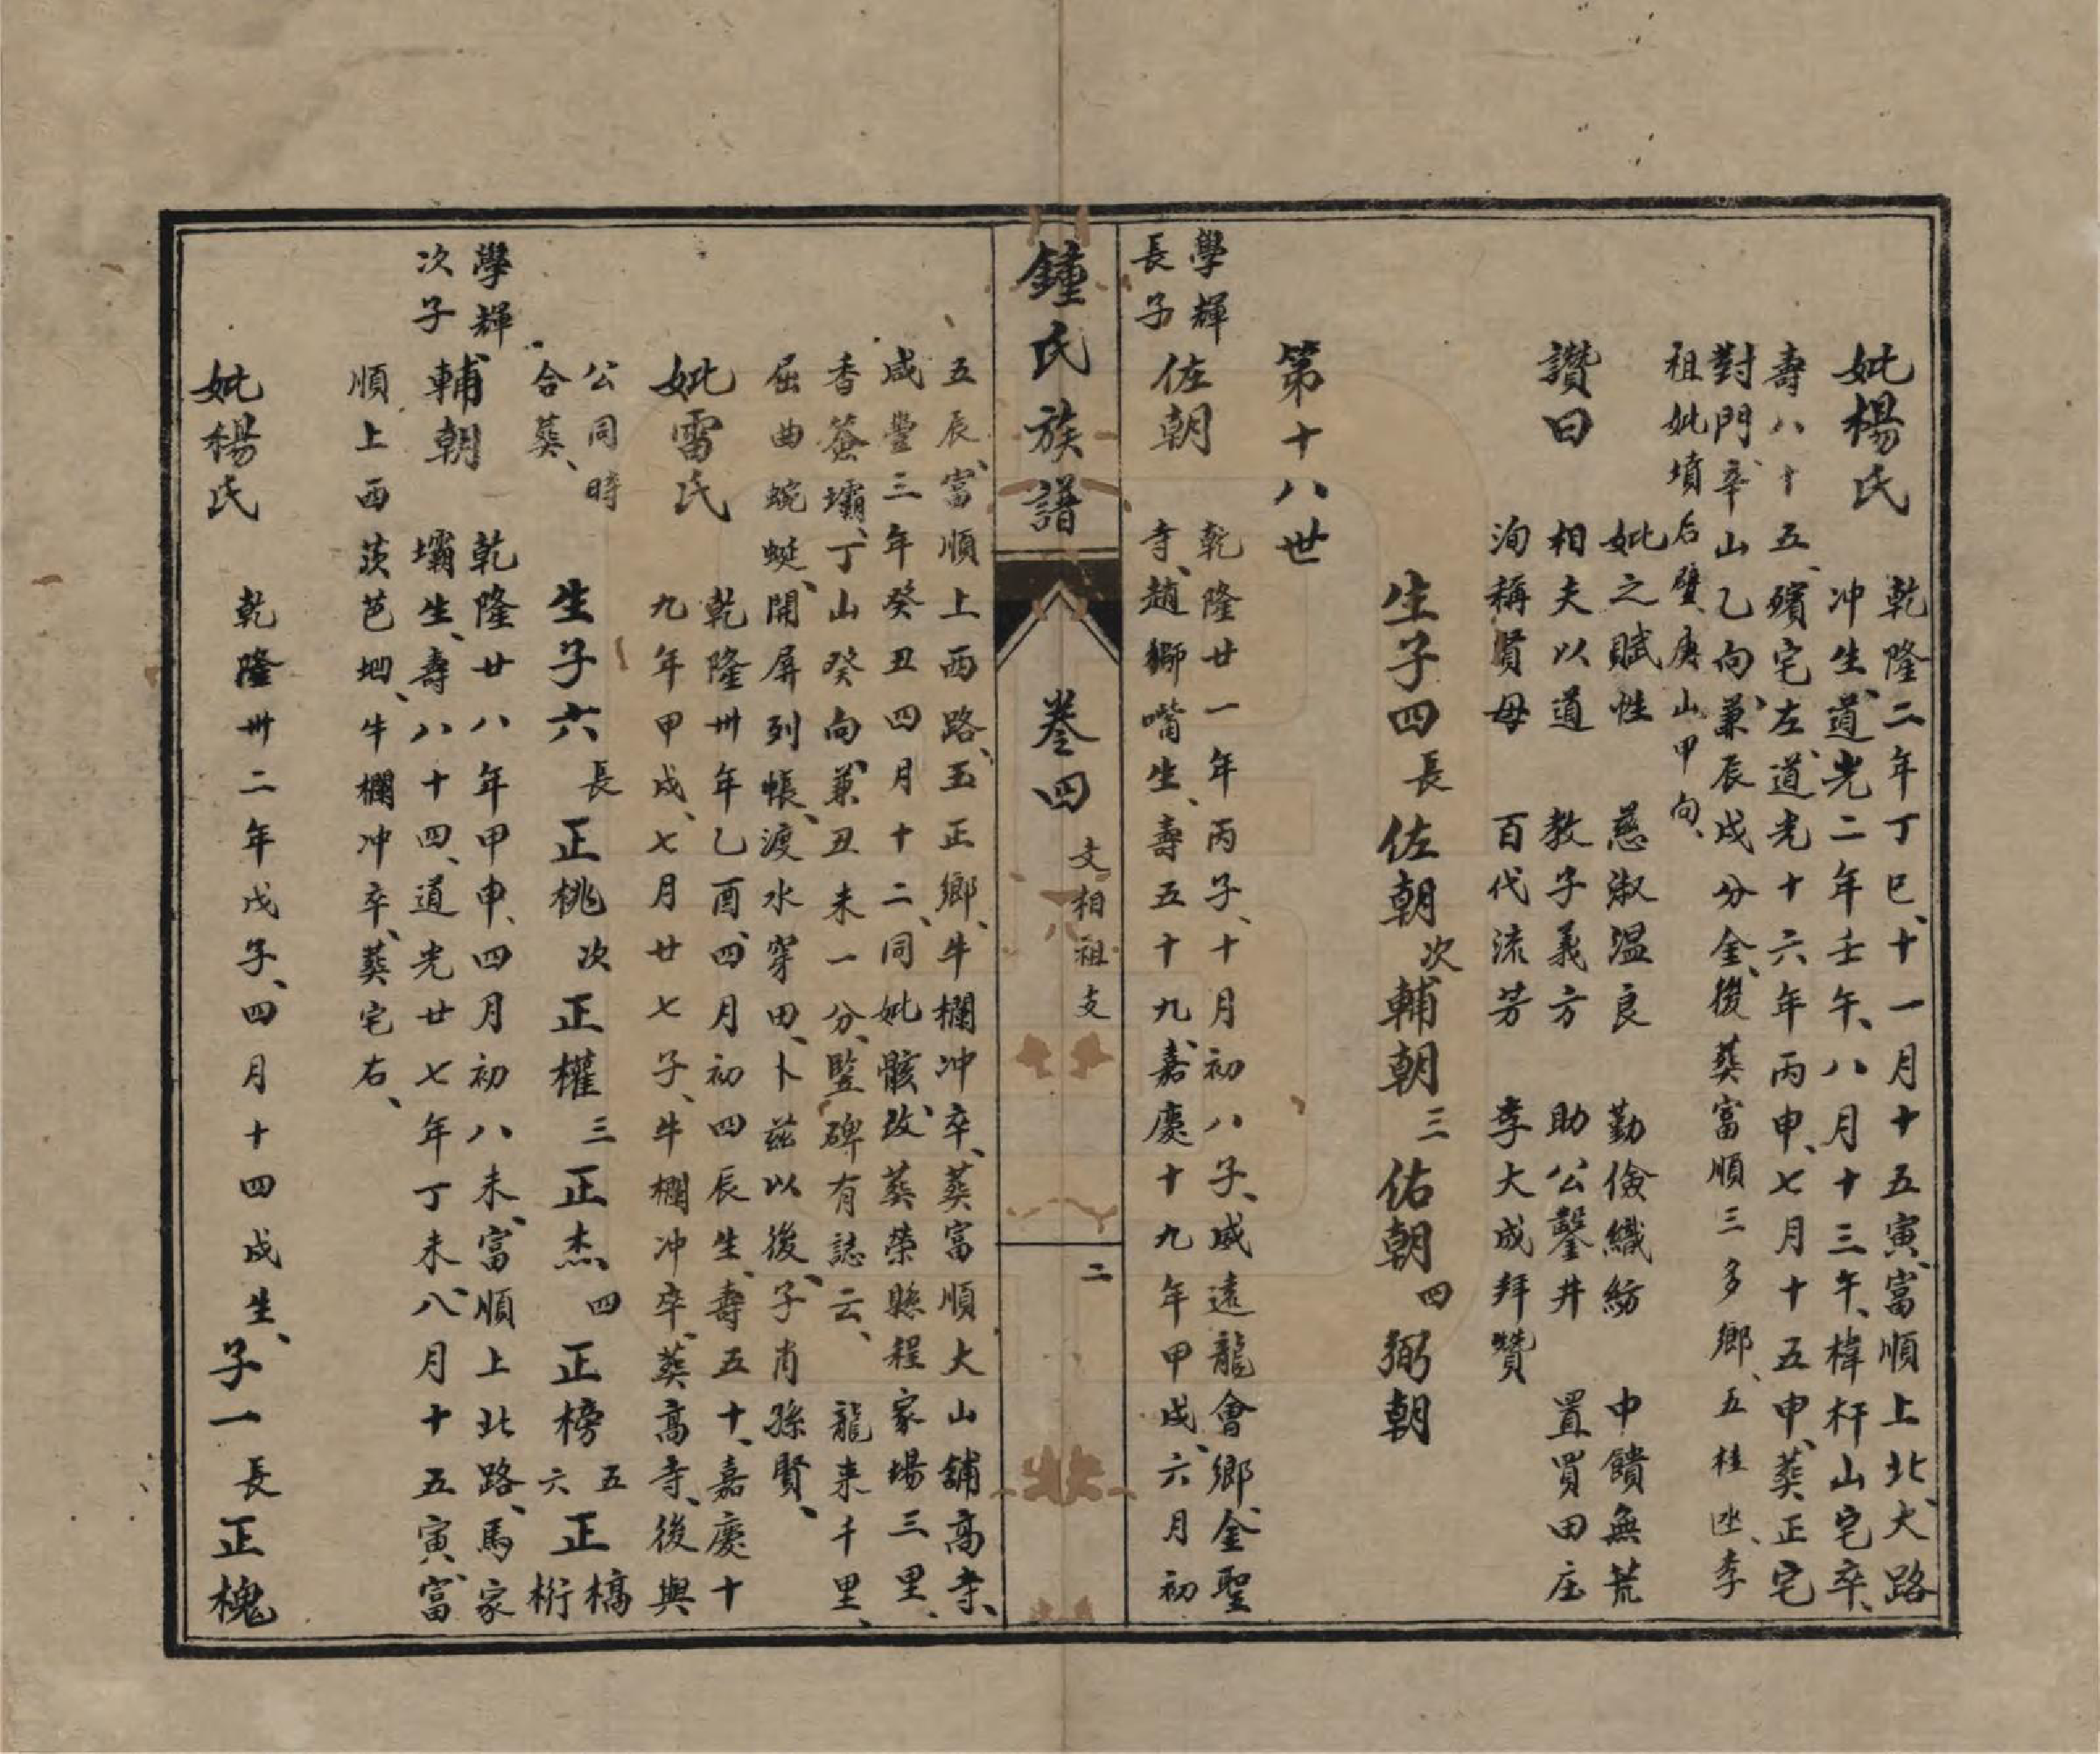 妣楊氏
乾隆二年丁巳、十一月十五寅、富順上北、大路
冲生、道光二年壬午、八月十三午、樟杆山宅卒、
壽八十五、殯宅左、道光十六年丙申、七月十五申、葵正宅
對門辛山乙向、兼辰戌分金、後葵富順三多鄉、五桂 、李
祖妣墳后壁、庚山甲向、
讚曰
妣之賦性 慈淑温良 勤儉織紡 中饋無荒
相夫以道 教子義方 助公鑿井 置買田庄
洵稱賢母 百代流芳 李大成拜贊
生子四 長佐朝 次輔朝 三佑朝 四弼朝
第十八世
學輝
長子
佐朝
乾隆廿一年丙子、十月初八子、威遠龍會鄉、金聖
寺、趙獅嘴生、壽五十九、嘉慶十九年甲戌、六月初
鍾氏族譜
卷四
文相祖支
二
五辰、富順上西路、玉正鄉、牛欄冲卒、葵富順大山鋪高寺、
咸豐三年癸丑四月十二、同妣骸、改葵榮縣程家場三里、
香簽壩、丁山癸向、兼丑未一分、豎碑有誌云、龍来千里、
屈曲蜿蜒、開屏列帳、渡水穿田、卜茲以後、子肖孫賢、
妣雷氏
乾隆卅年乙酉、四月初四辰生、壽五十、嘉慶十
九年甲戌、七月廿七子、牛欄冲卒、葵高寺、後與
公同時
合葵、
生子六 長正桃 次正權 三正杰 四正榜 五六正槁桁
學輝
次子
輔朝
乾隆廿八年甲申、四月初八未、富順上北路、馬家
壩生、壽八十四、道光廿七年丁未、八月十五寅、富
順上西茨芭坳、牛欄冲卒、葵宅右、
妣楊氏
乾隆卅二年戊子、四月十四戌生、子一長正槐